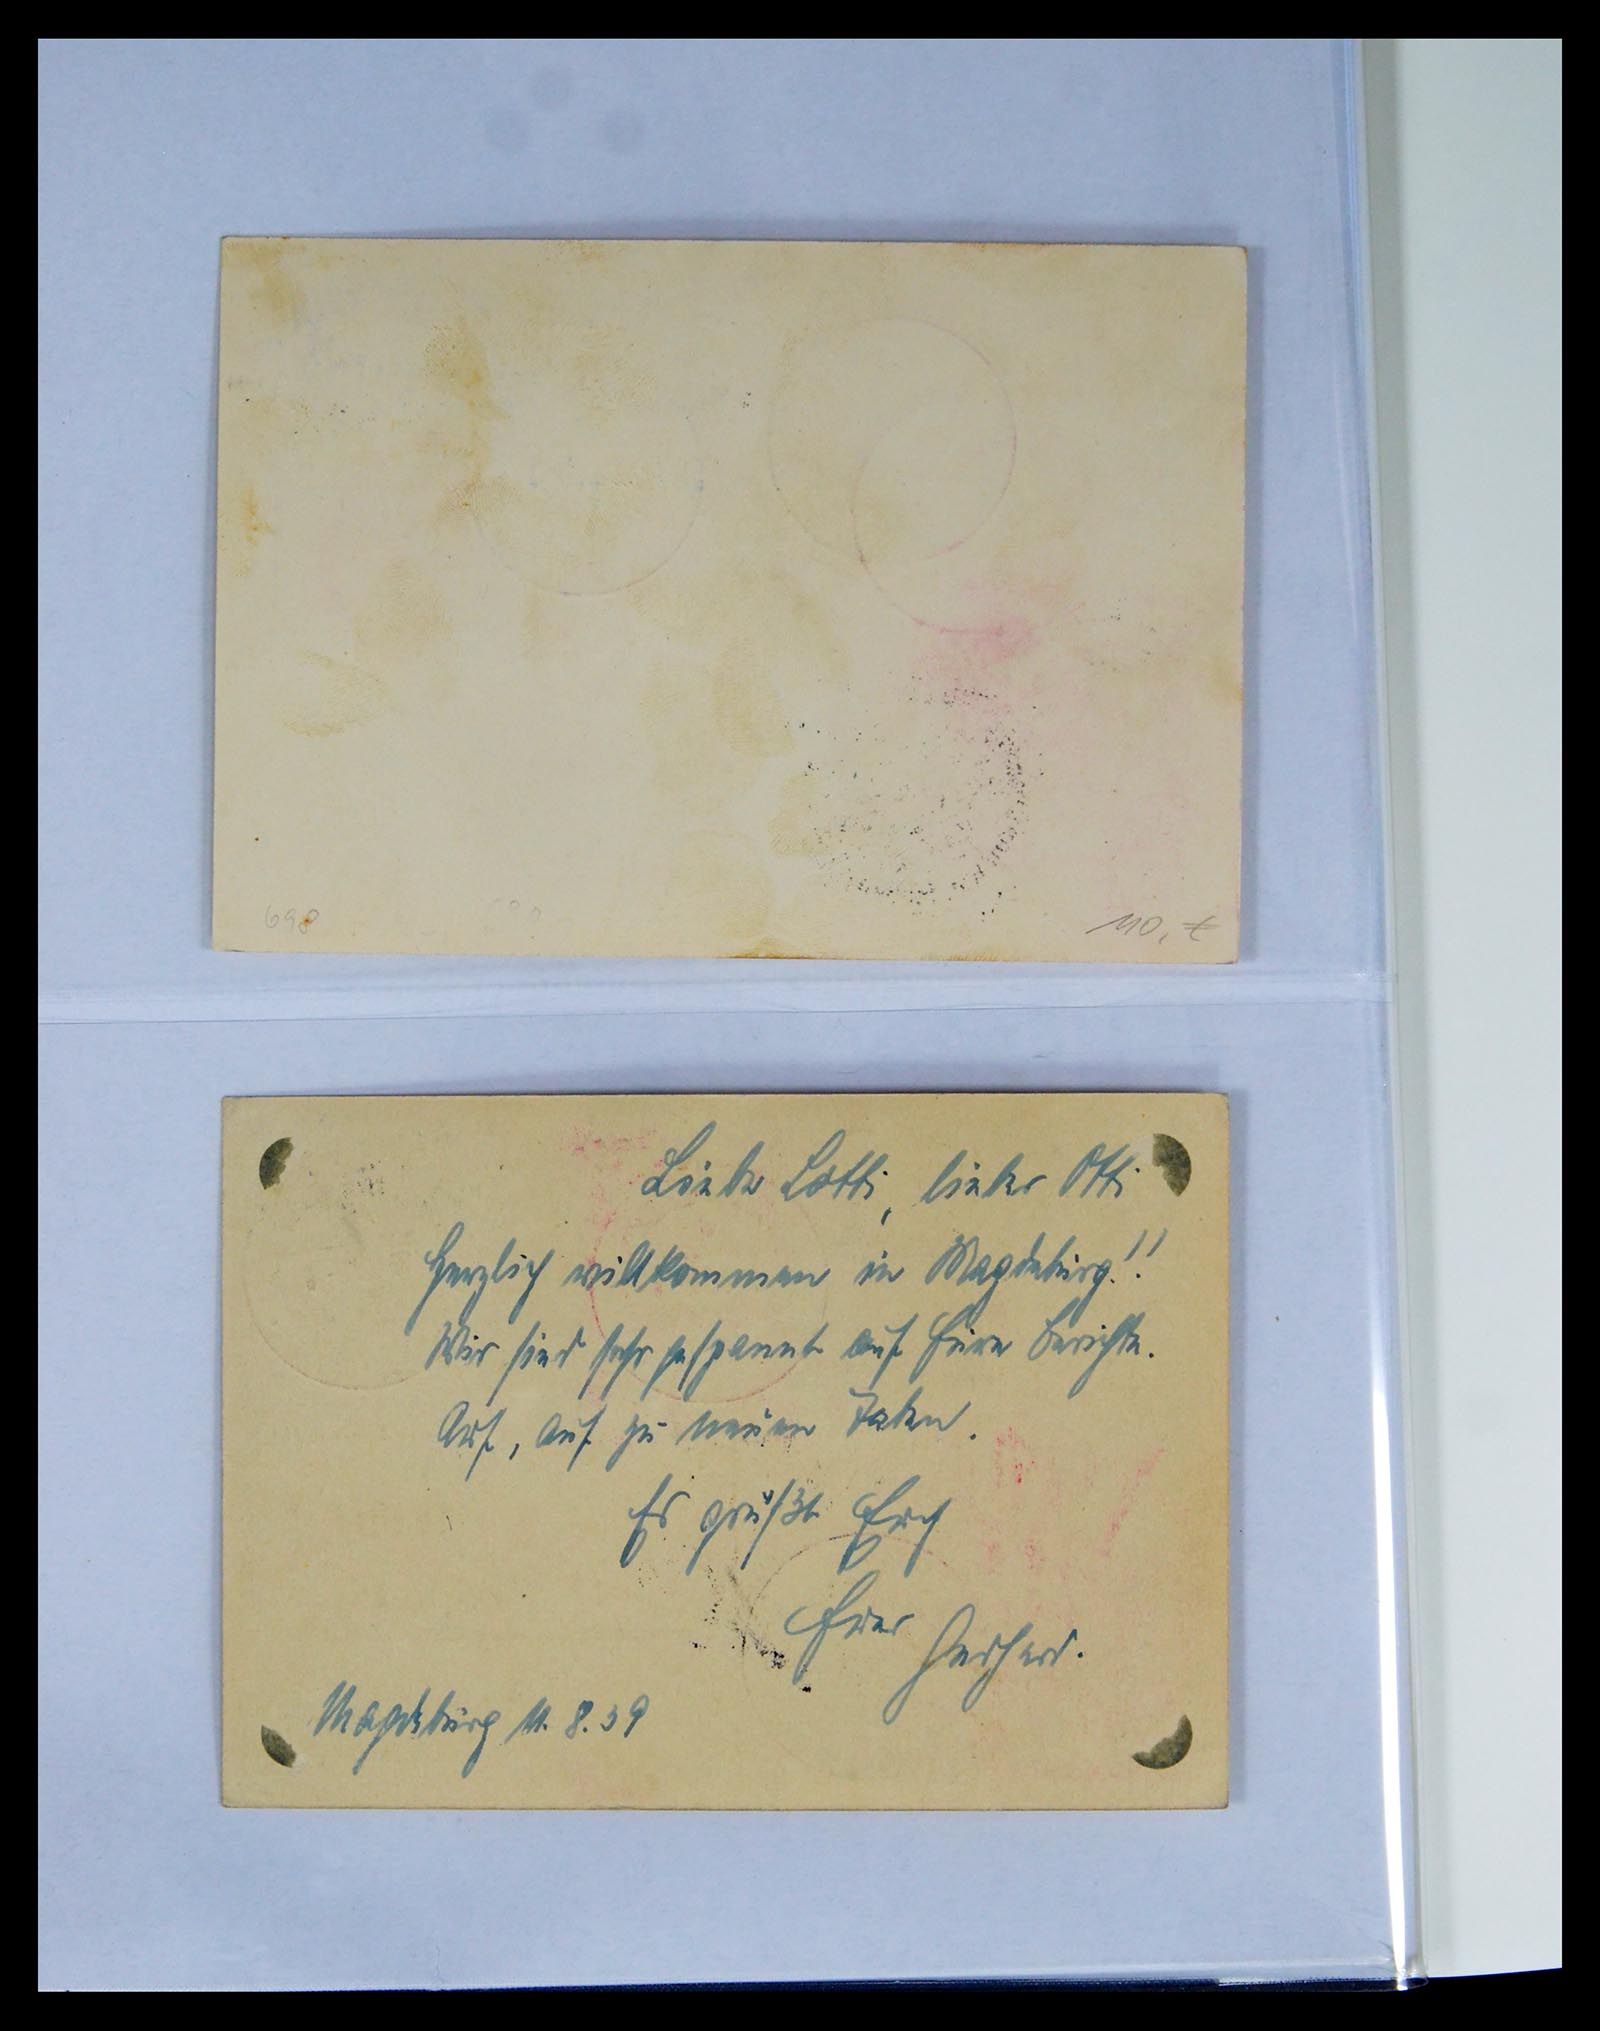 698
110,- €
Liebe Lotti, lieber Otti
Herzlich willkommen in Magdeburg!!
Wir sind sehr gespannt auf Eure Berichte.
Auf, auf zu neuen Taten.
Es grüßt Euch
Euer Gerhard.
Magdeburg 11. 8. 39